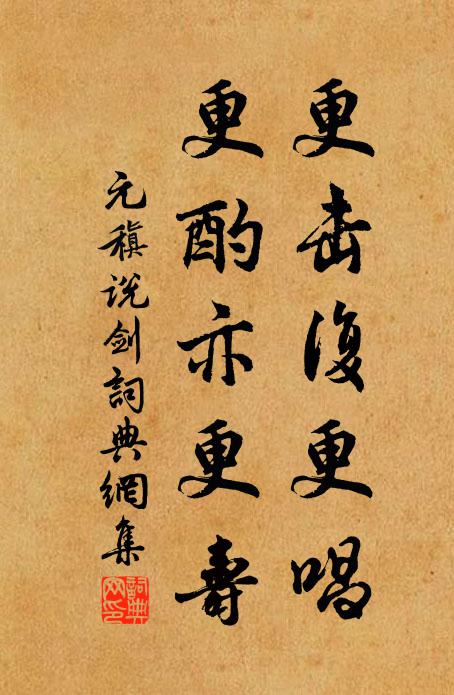 更击復更唱
更酌亦更壽
元稹说剑詞典網集
詞典网印